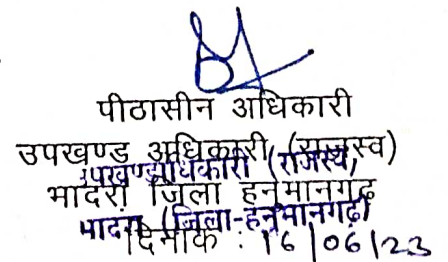 पीठासीन अधिकारी
उपखण्ड अधिकारी (राजस्व)
उपखण्ड अधिकारी (राजस्व)
भादरा जिला हनुमानगढ़
भादरा (जिला-हनुमानगढ़)
दिनांक : 16/06/23